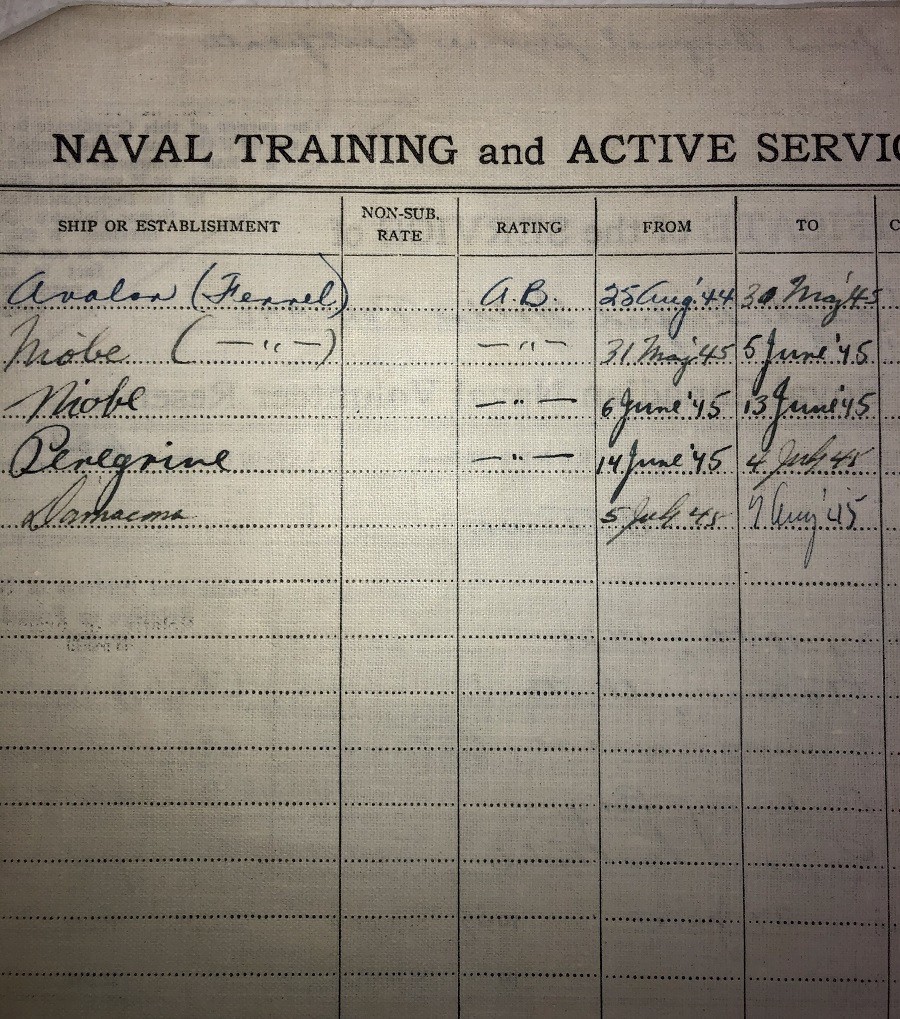 NAVAL TRAINING and ACTIVE SERVIC
SHIP OR ESTABLISHMENT NON-SUB. RATE RATING FROM TO C
Avalon (Fennel) A.B. 25 Aug. '44 30 May '45
Niobe ( — " — ) — " — 31 May '45 5 June '45
Niobe — " — 6 June '45 13 June '45
Peregrine — " — 14 June '45 4 July 45
5 July 45 7 Aug '45